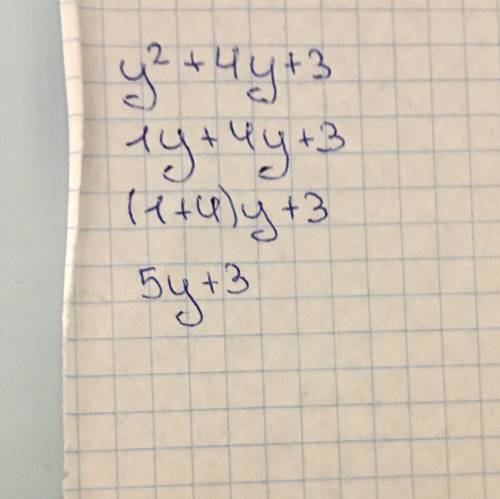 y² + 4y + 3
1y + 4y + 3
(1+4)y + 3
5y + 3